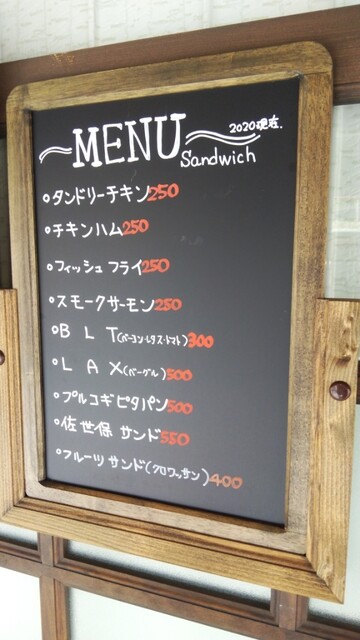 MENU
2020現在.
Sandwich
○タンドリーチキン250
○チキンハム250
○フィッシュフライ250
○スモークサーモン250
○B L T(ベーコン・レタス・トマト)300
○L A X(ベーグル)500
○プルコギピタパン500
○佐世保 サンド550
○フルーツ サンド(クロワッサン)400